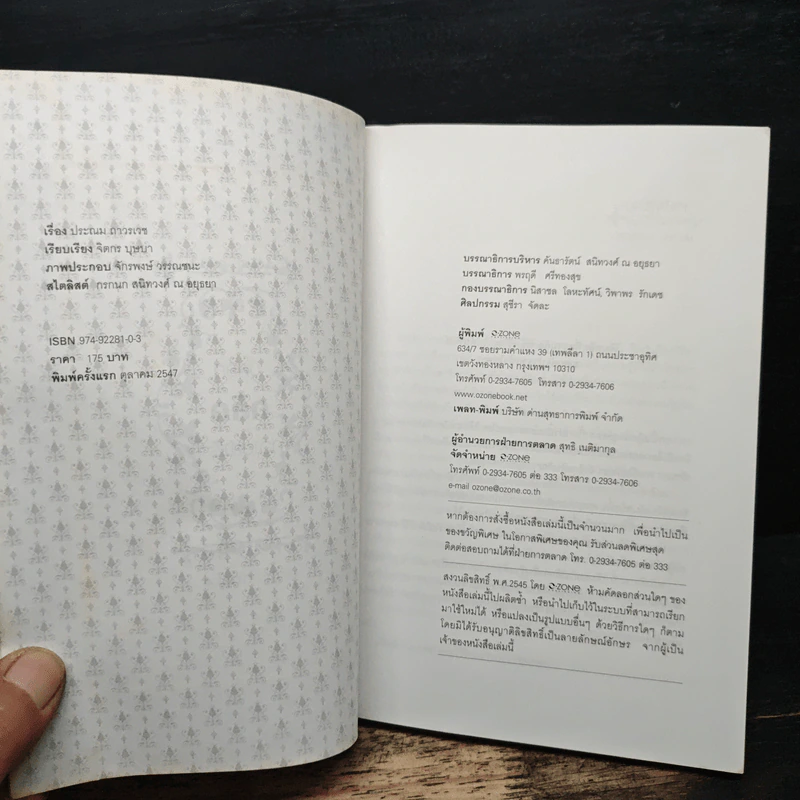 เรื่อง ประณม ถาวรเวช
เรียบเรียง จิตกร บุษบา
ภาพประกอบ จักรพงษ์ วรรณชนะ
สไตลิสต์ กรกนก สนิทวงศ์ ณ อยุธยา
ISBN 974-92281-0-3
ราคา 175 บาท
พิมพ์ครั้งแรก ตุลาคม 2547
บรรณาธิการบริหาร คันธารัตน์ สนิทวงศ์ ณ อยุธยา
บรรณาธิการ พรฤดี ศรีทองสุข
กองบรรณาธิการ นิสาชล โลหะทัศน์, วิพาพร รักเดช
ศิลปกรรม สุชีรา จัดละ
ผู้พิมพ์ OZONE
634/7 ซอยรามคำแหง 39 (เทพลีลา 1) ถนนประชาอุทิศ
เขตวังทองหลาง กรุงเทพฯ 10310
โทรศัพท์ 0-2934-7605 โทรสาร 0-2934-7606
www.ozonebook.net
เพลท-พิมพ์ บริษัท ด่านสุทธาการพิมพ์ จำกัด
ผู้อำนวยการฝ่ายการตลาด สุทธิ เนติมากุล
จัดจำหน่าย OZONE
โทรศัพท์ 0-2934-7605 ต่อ 333 โทรสาร 0-2934-7606
e-mail ozone@ozone.co.th
หากต้องการสั่งซื้อหนังสือเล่มนี้เป็นจำนวนมาก เพื่อนำไปเป็น
ของขวัญพิเศษ ในโอกาสพิเศษของคุณ รับส่วนลดพิเศษสุด
ติดต่อสอบถามได้ที่ฝ่ายการตลาด โทร. 0-2934-7605 ต่อ 333
สงวนลิขสิทธิ์ พ.ศ.2545 โดย OZONE ห้ามคัดลอกส่วนใดๆ ของ
หนังสือเล่มนี้ไปผลิตซ้ำ หรือนำไปเก็บไว้ในระบบที่สามารถเรียก
มาใช้ใหม่ได้ หรือแปลงเป็นรูปแบบอื่นๆ ด้วยวิธีการใดๆ ก็ตาม
โดยมิได้รับอนุญาติลิขสิทธิ์เป็นลายลักษณ์อักษร จากผู้เป็น
เจ้าของหนังสือเล่มนี้